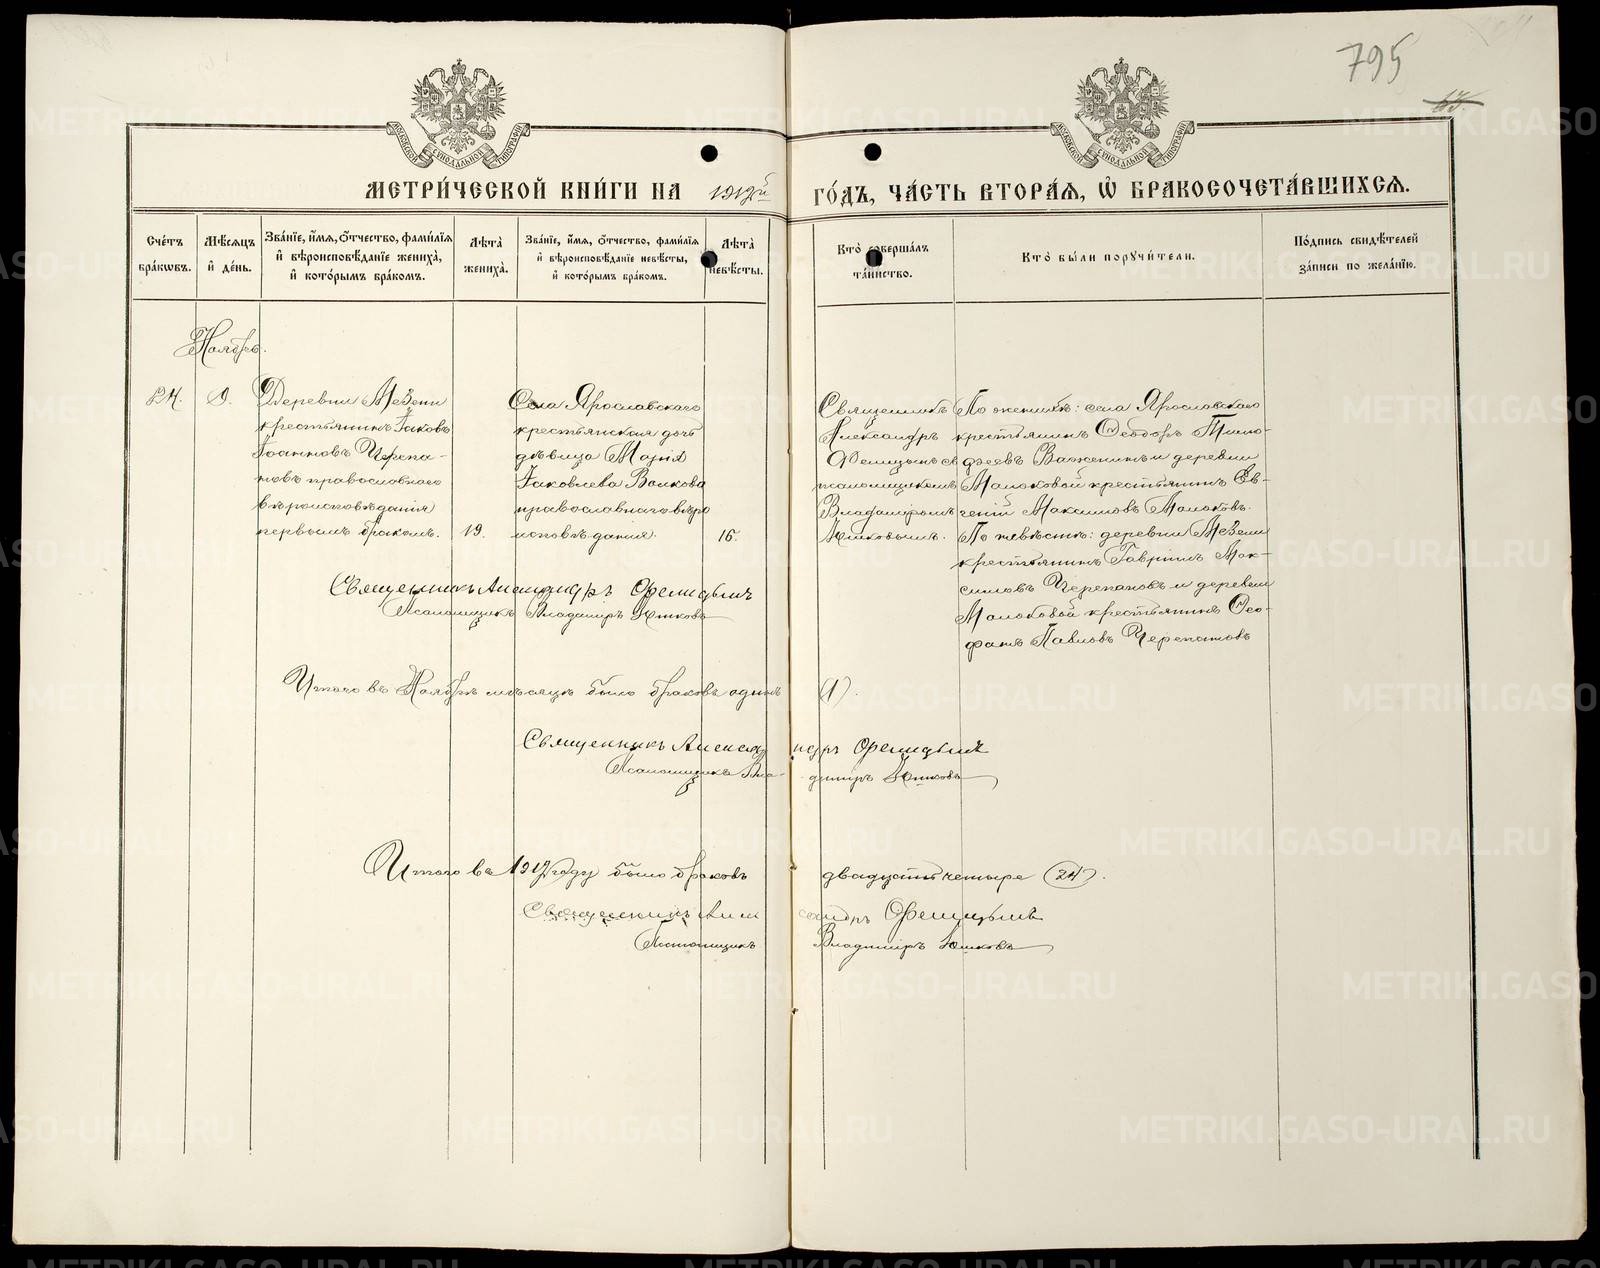 795
МОСКОВСКОЙ СѴНОДАЛЬНОЙ ТИПОГРАФІИ
МОСКОВСКОЙ СѴНОДАЛЬНОЙ ТИПОГРАФІИ
МЕТРИ́ЧЕСКОЙ КНИ́ГИ НА 1912й ГО́ДЪ, ЧА́СТЬ ВТОРА́Я, Ѡ҆ БРАКОСОЧЕТА́ВШИХСЯ.
Сче́тъ бра́кѡвъ.
Мѣ́сяцъ и҆ де́нь.
Зва́нїе, и҆́мя, ѻ҆́тчество, фами́лїя и҆ вѣроисповѣ́данїе жениха̀, и҆ кото́рымъ бра́комъ.
Лѣ́та жениха̀.
Зва́нїе, и҆́мя, ѻ҆́тчество, фами́лїя и҆ вѣроисповѣ́данїе невѣ́сты, и҆ кото́рымъ бра́комъ.
Лѣ́та невѣ́сты.
Кто̀ соверша́лъ та́инство.
Кто̀ бы́ли поручи́тели.
По́дпись свидѣ́телей за́писи по жела́нїю.
Ноябрь.
24.
9.
Деревни Мезени
крестьянинъ Іаковъ
Іоанновъ Черепа-
новъ православнаго
вѣроисповѣданія
первымъ бракомъ.
19.
Села Ярославскаго
крестьянская дочь
дѣвица Марія
Іаковлева Волкова
православнаго вѣро
исповѣданія.
16.
Священникъ
Александръ
Фелицынъ съ
псаломщикомъ
Владимиромъ
Юшковымъ.
По женихѣ: села Ярославскаго
крестьянинъ Ѳеодоръ Тимо-
феевъ Важенинъ и деревни
Малоковой крестьянинъ Ев-
геній Максимовъ Малоковъ.
По невѣстѣ: деревни Мезени
крестьянинъ Гавріилъ Мак-
симовъ Черепановъ и деревни
Малоковой крестьянинъ Ѳео-
фанъ Павловъ Черепановъ
Священникъ Александръ Фелицынъ
Псаломщикъ Владимиръ Юшковъ
Итого въ Ноябрѣ мѣсяцѣ было браковъ одинъ (1).
Священникъ Александръ Фелицынъ
Псаломщикъ Владимиръ Юшковъ
Итого въ 1912 году было браковъ двадцать четыре (24).
Священникъ Александръ Фелицынъ
Псаломщикъ Владимиръ Юшковъ
METRIKI.GASO-URAL.RU